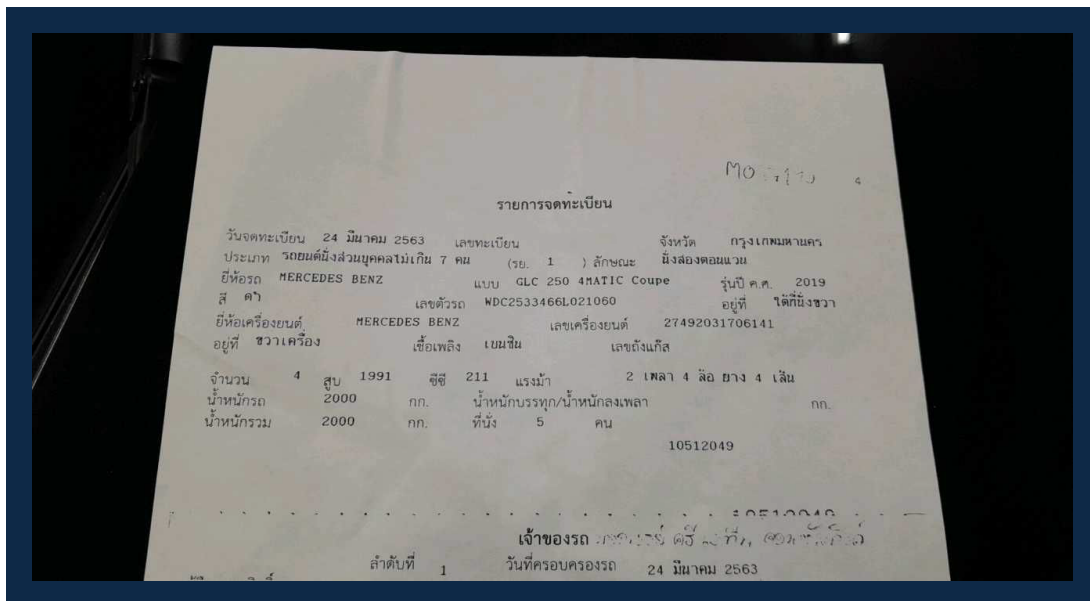 รายการจดทะเบียน
วันจดทะเบียน 24 มีนาคม 2563 เลขทะเบียน จังหวัด กรุงเทพมหานคร
ประเภท รถยนต์นั่งส่วนบุคคลไม่เกิน 7 คน (รย. 1 ) ลักษณะ นั่งสองตอนแวน
ยี่ห้อรถ MERCEDES BENZ แบบ GLC 250 4MATIC Coupe รุ่นปี ค.ศ. 2019
สี ดำ เลขตัวรถ WDC2533466L021060 อยู่ที่ ใต้ที่นั่งขวา
ยี่ห้อเครื่องยนต์ MERCEDES BENZ เลขเครื่องยนต์ 27492031706141
อยู่ที่ ขวาเครื่อง เชื้อเพลิง เบนซิน เลขถังแก๊ส
จำนวน 4 สูบ 1991 ซีซี 211 แรงม้า 2 เพลา 4 ล้อ ยาง 4 เส้น
น้ำหนักรถ 2000 กก. น้ำหนักบรรทุก/น้ำหนักลงเพลา กก.
น้ำหนักรวม 2000 กก. ที่นั่ง 5 คน
10512049
เจ้าของรถ
ลำดับที่ 1 วันที่ครอบครองรถ 24 มีนาคม 2563